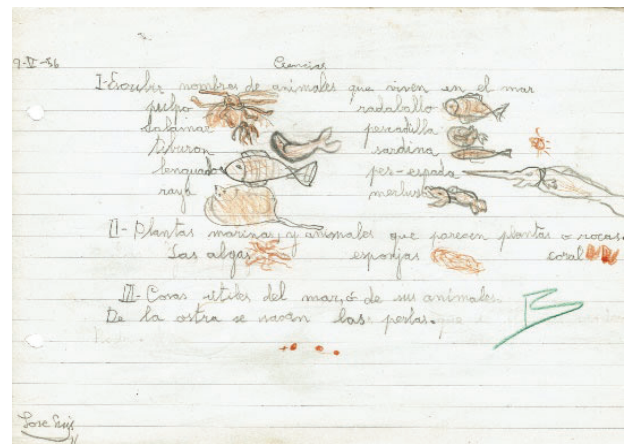 9-V-86
Ciencias
I-Escribir nombres de animales que viven en el mar
pulpo rodaballo
calamar pescadilla
tiburon sardina
lenguados pez-espada
raya merluza
II- Plantas marinas y animales que parecen plantas o rocas.
Las algas esponjas coral
III- Cosas utiles del mar, ó de sus animales.
De la ostra se sacan las perlas.
B
Jose Luis